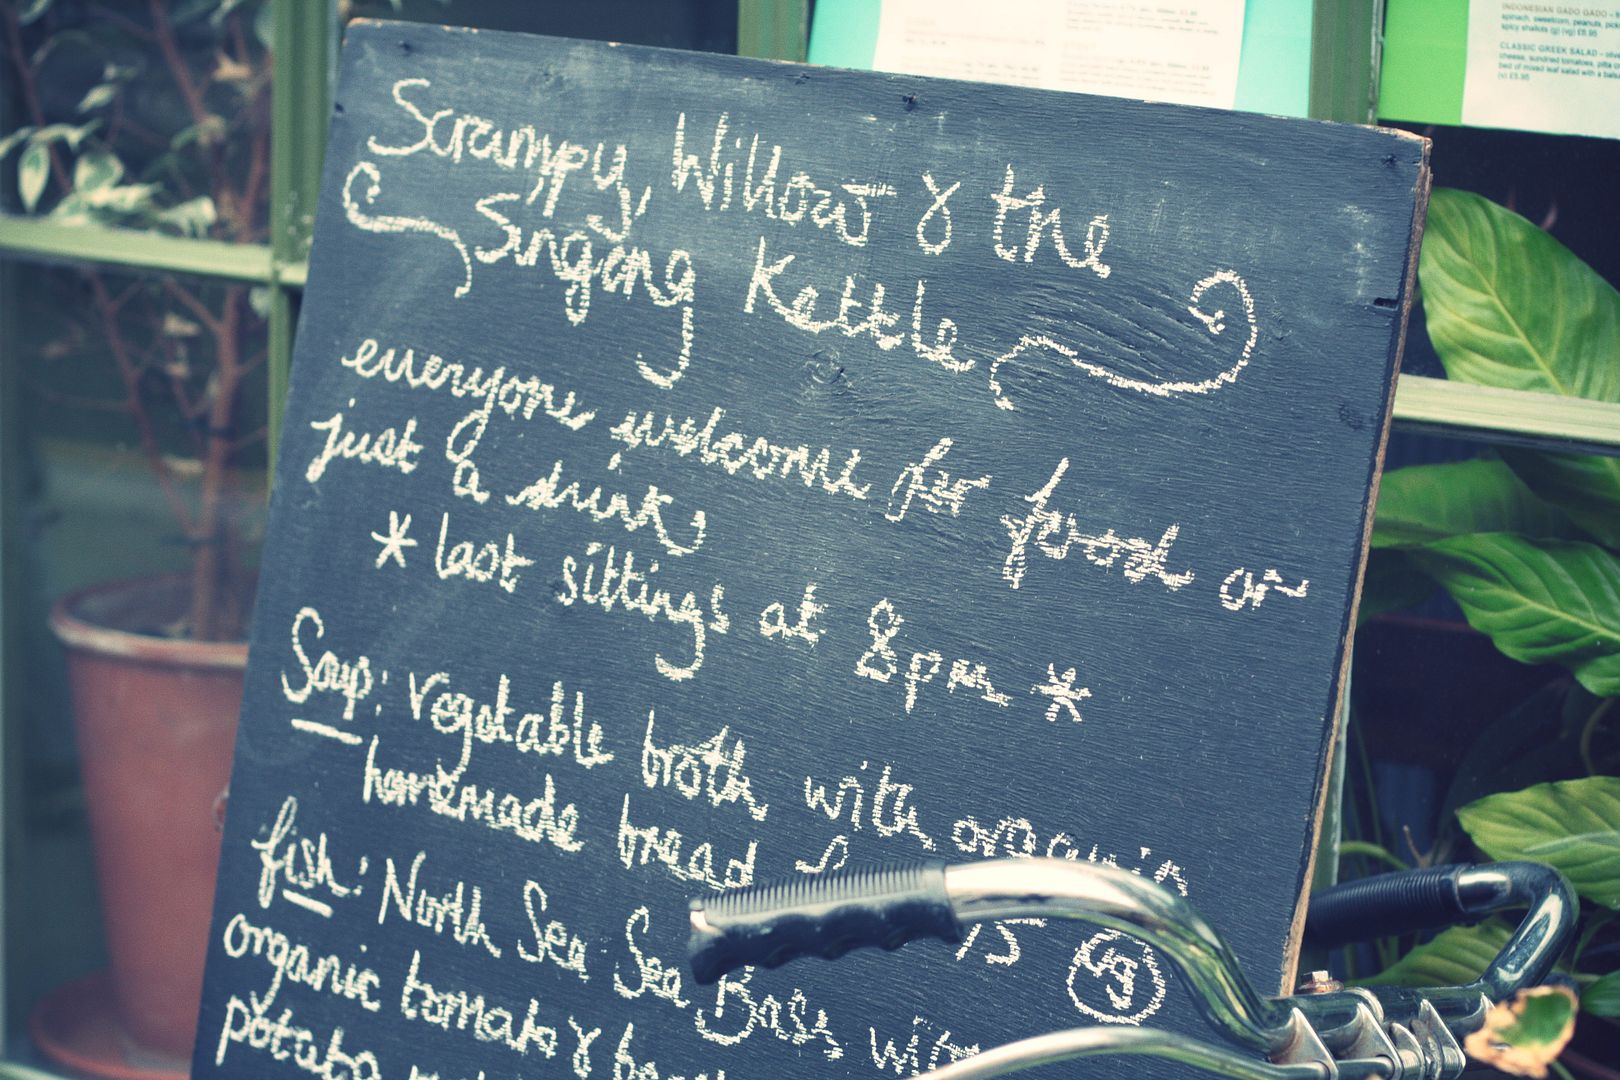 Scrumpy, Willow & the
Singing Kettle
everyone welcome for food or
just a drink
* last sittings at 8pm *
Soup: vegetable broth with organic
homemade bread
15 vg
fish: North Sea Sea Bass with
organic tomato &
potato
INDONESIAN GADO GADO
spinach, sweetcorn, peanuts,
spicy shallots (g) (vg) £6.95
CLASSIC GREEK SALAD
cheese, sundried tomatoes, pitta
bed of mixed leaf salad with a
(v) £5.95